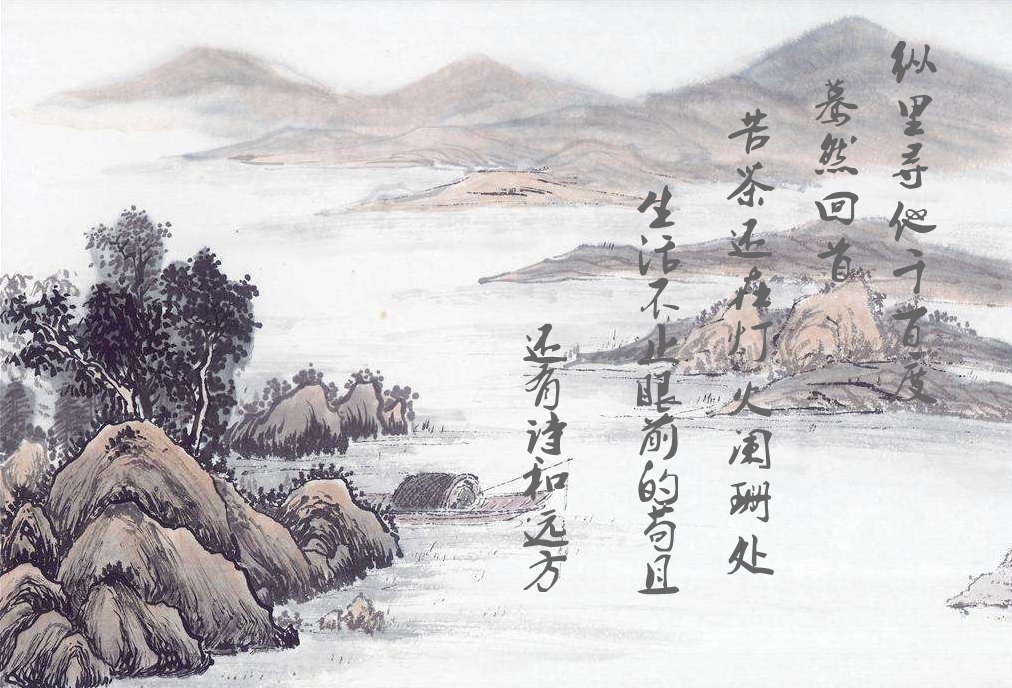 纵里寻他千百度
蓦然回首
苦茶还在灯火阑珊处
生活不止眼前的苟且
还有诗和远方